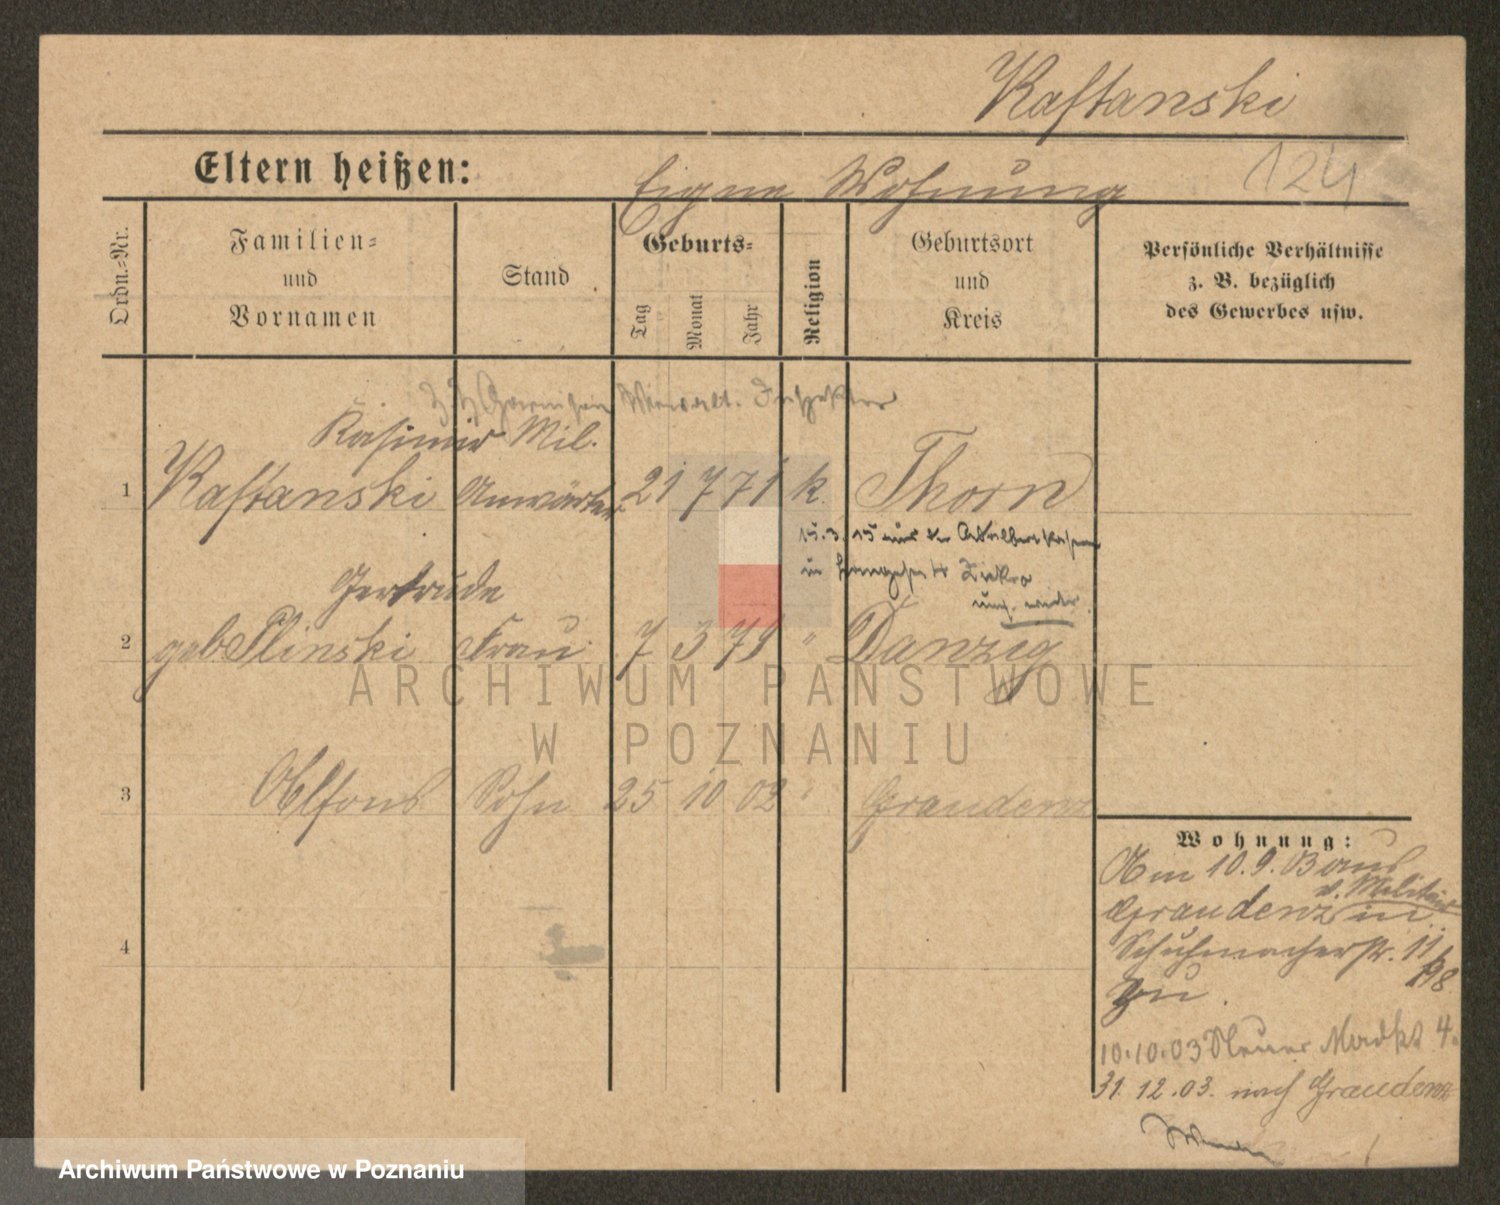 Kaftanski
Eltern heißen:
124
Eigene Wohnung
Ordn.-Nr.
Familien-
und
Vornamen
Stand
Geburts-
Tag
Monat
Jahr
Religion
Geburtsort
und
Kreis
Persönliche Verhältnisse
z. B. bezüglich
des Gewerbes usw.
z. Z. Garnison Verwalt. Inspektor
Kasimir Mil.
1 Kaftanski Anwärter 21 7 71 k. Thorn
15.3.15 aus der
in
Gertrude
2 geb Plinski Frau 7 3 79 " Danzig
3 Alfons Sohn 25 10 02 " Graudenz
4
Wohnung:
Am 10.9.03 aus
v. Militär
Graudenz in
Schuhmacherstr. 11
zu.
10.10.03 Neuer Markt 4.
31.12.03. nach Graudenz
ARCHIWUM PAŃSTWOWE
W POZNANIU
Archiwum Państwowe w Poznaniu